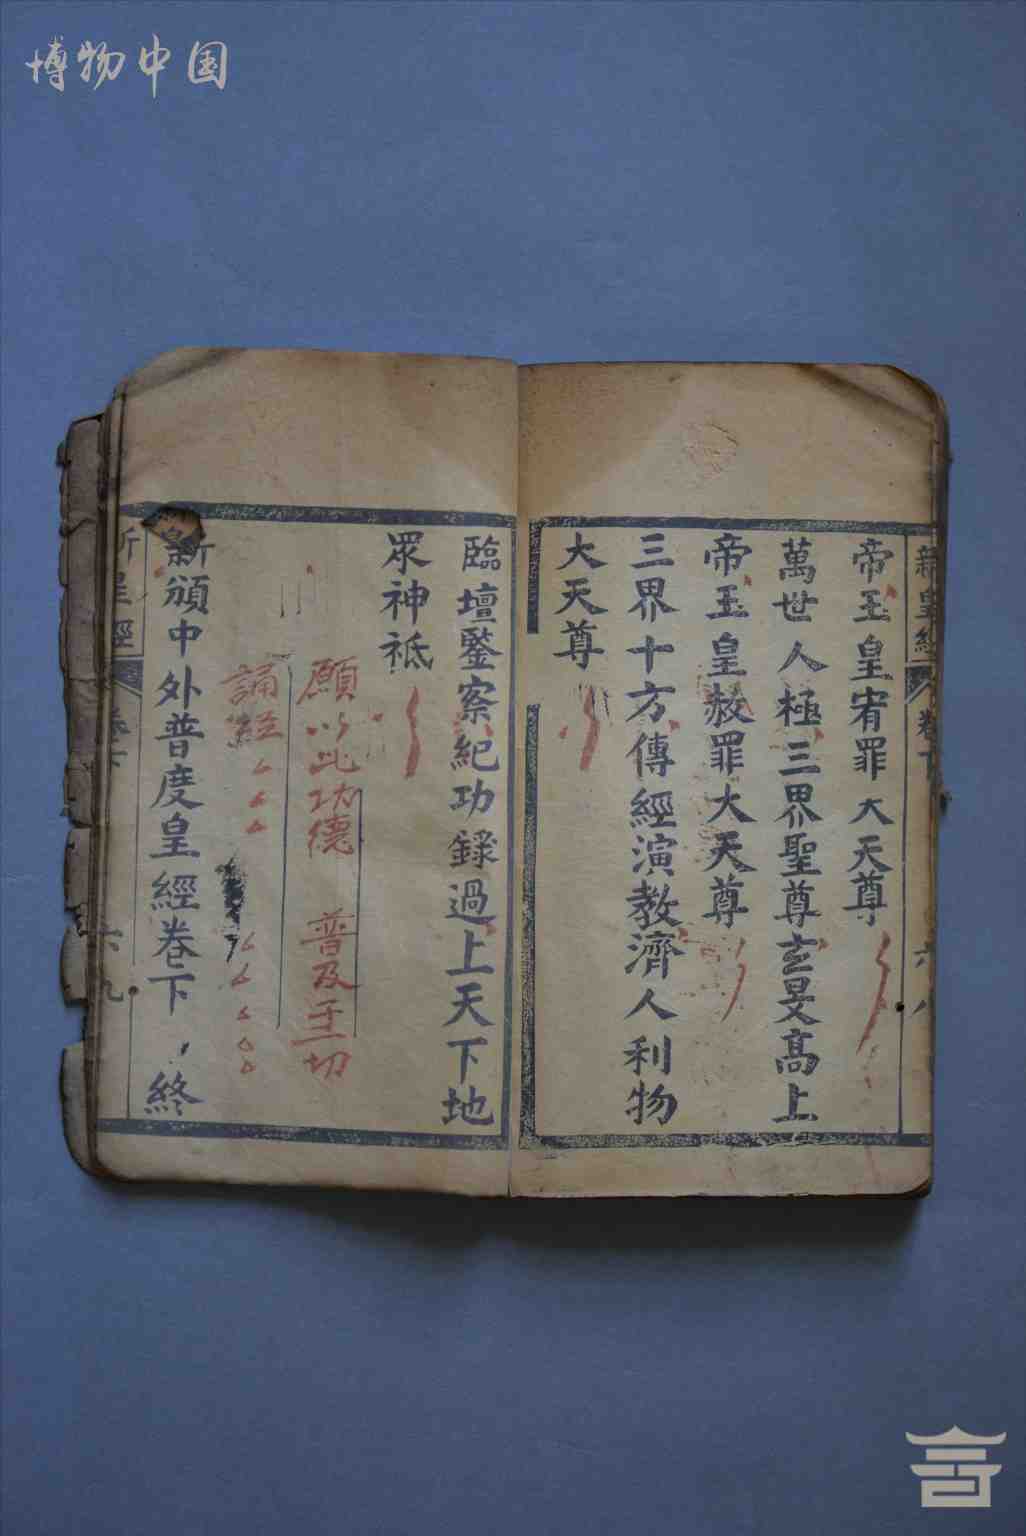 博物中国
新皇經
卷下
六八
帝玉皇宥罪大天尊
萬世人極三界聖尊玄旻高上
帝玉皇赦罪大天尊
三界十方傳經演教濟人利物
大天尊
臨壇鑒察紀功錄過上天下地
眾神祇
願以此功德 普及至一切
誦經
新頒中外普度皇經卷下 終
新皇經
卷下
六九